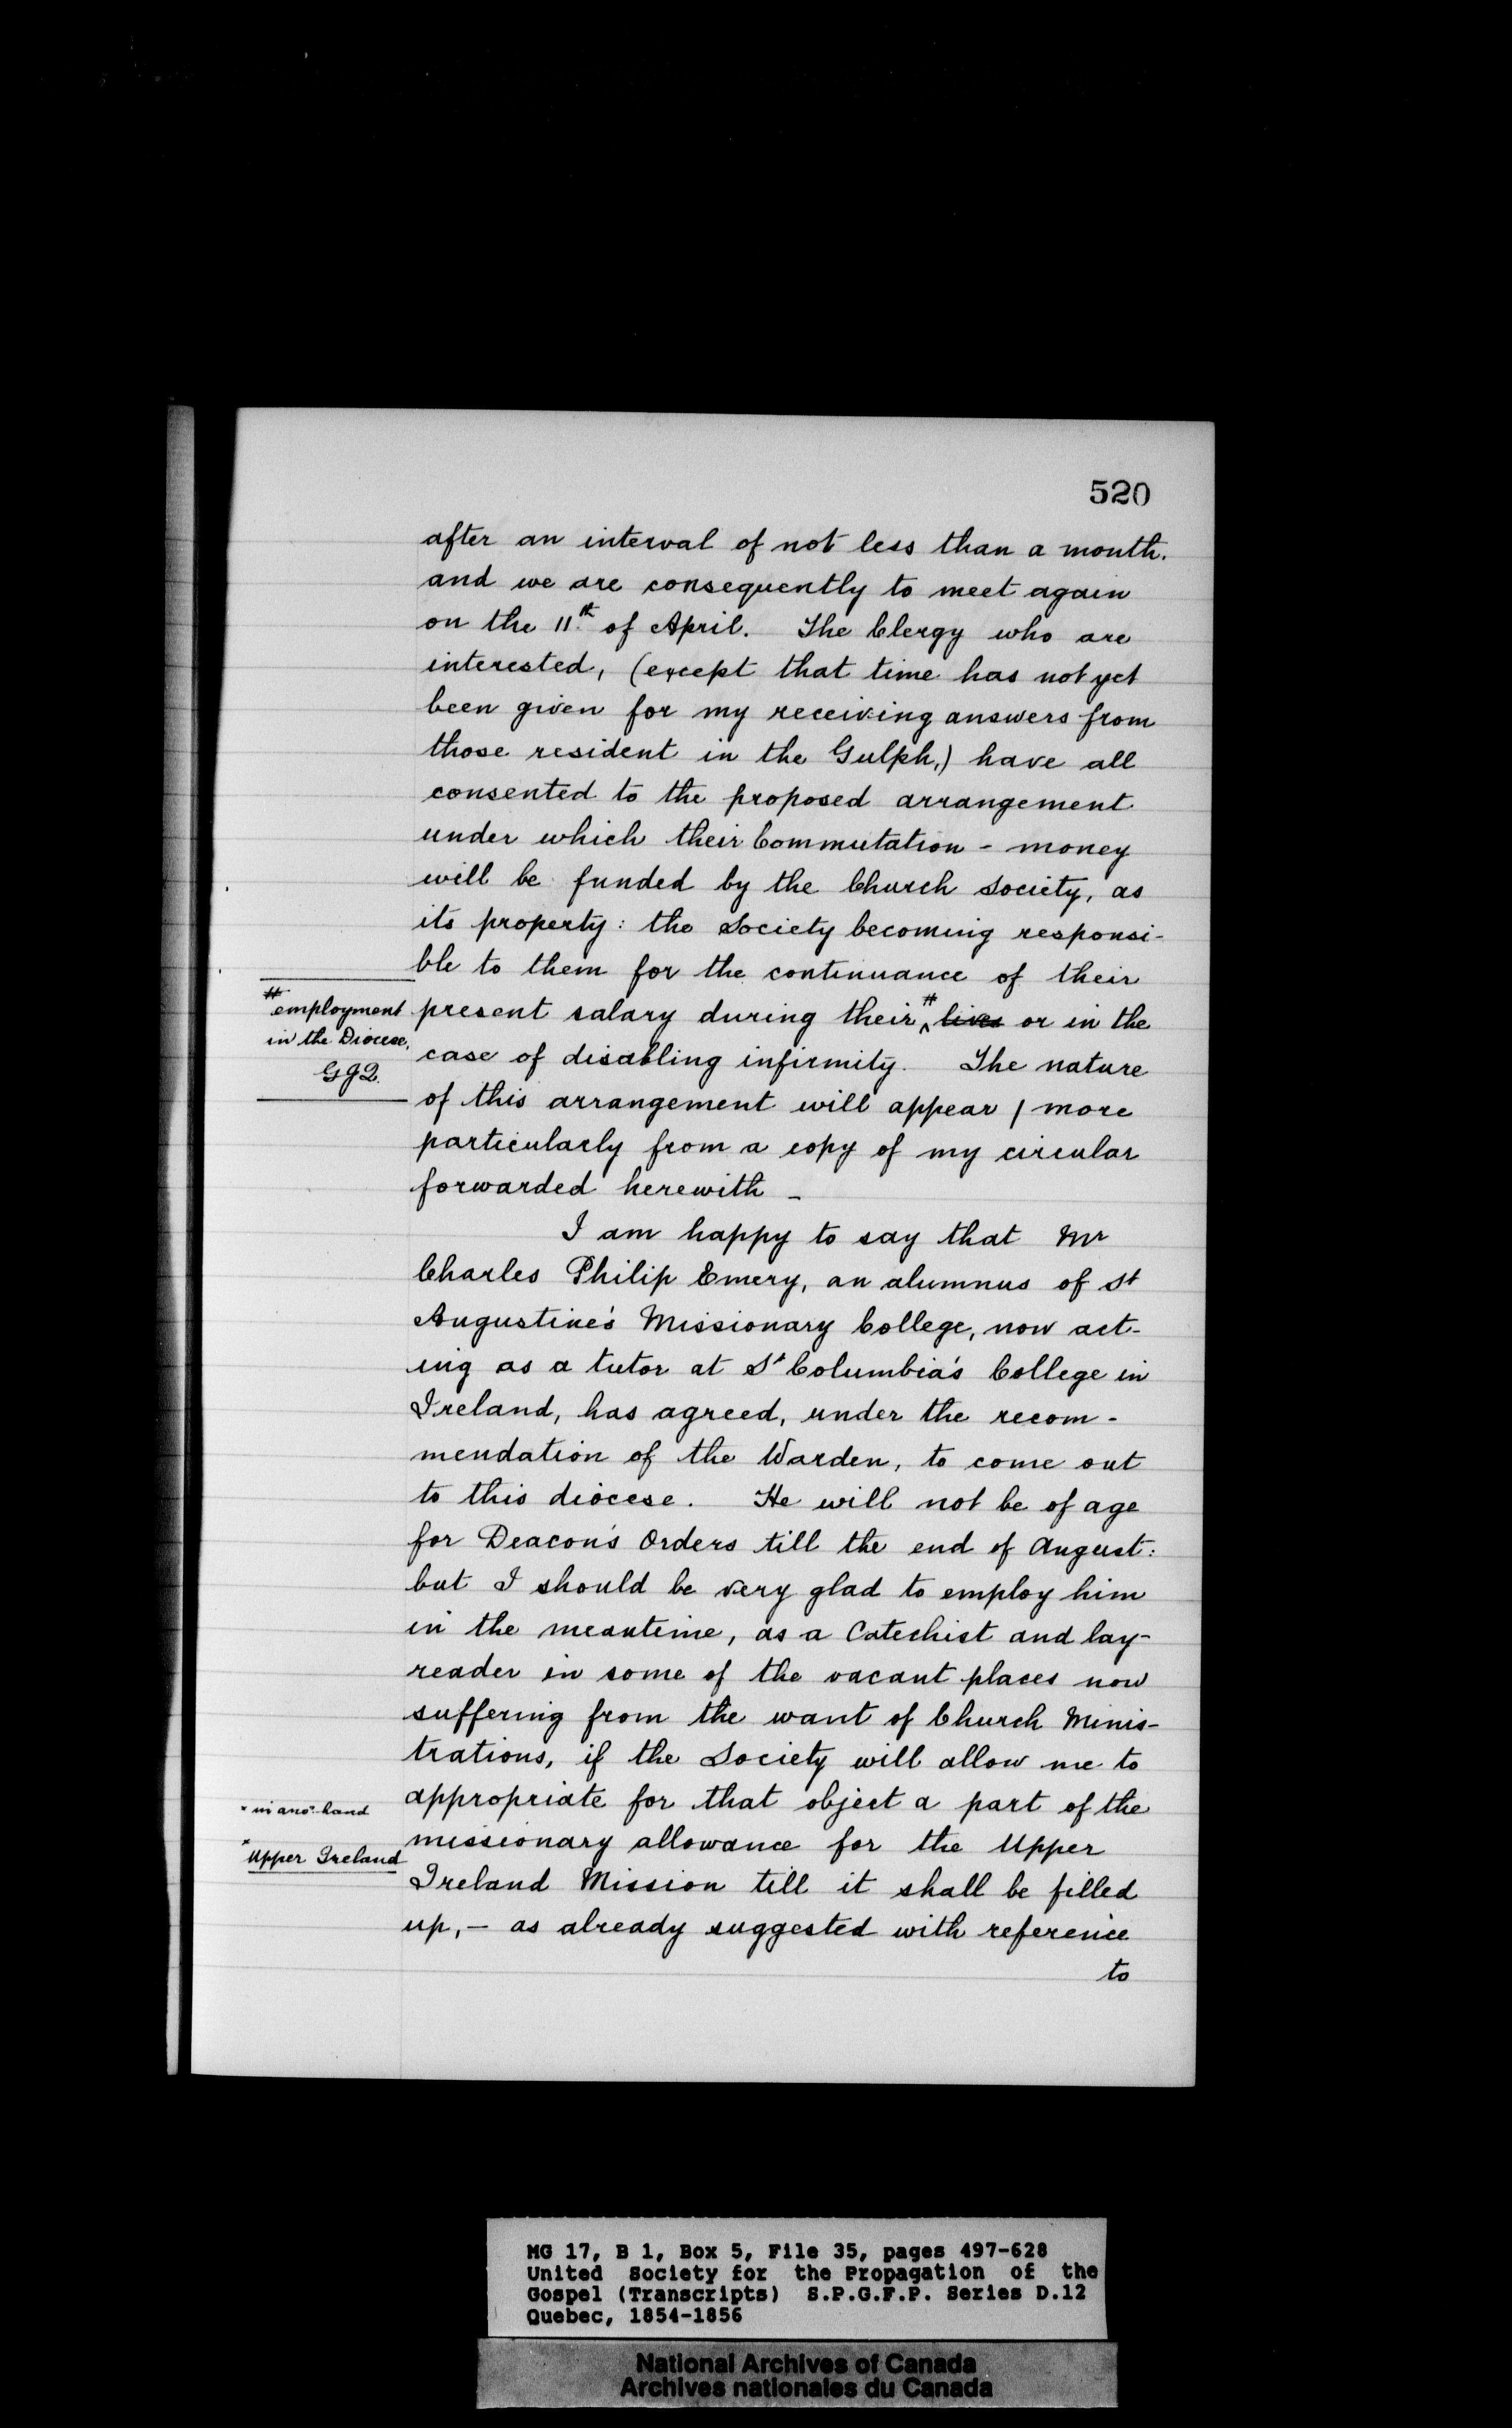 520
after an interval of not less than a month.
and we are consequently to meet again
on the 11th of April. The Clergy who are
interested, (except that time has not yet
been given for my receiving answers from
those resident in the Gulph,) have all
consented to the proposed arrangement
under which their Commutation - money
will be funded by the Church Society, as
its property: the Society becoming responsi-
ble to them for the continuance of their
# employment
in the Diocese.
G J Q.
present salary during their ^# lives or in the
case of disabling infirmity. The nature
of this arrangement will appear / more
particularly from a copy of my circular
forwarded herewith -
I am happy to say that Mr
Charles Philip Emery, an alumnus of St
Augustine's Missionary College, now act-
ing as a tutor at St Columbia's College in
Ireland, has agreed, under the recom-
mendation of the Warden, to come out
to this diocese. He will not be of age
for Deacon's Orders till the end of August:
but I should be very glad to employ him
in the meantime, as a Catechist and lay-
reader in some of the vacant places now
suffering from the want of Church Minis-
trations, if the Society will allow me to
appropriate for that object a part of the
missionary allowance for the Upper
Ireland Mission till it shall be filled
up, - as already suggested with reference
to
* in anor hand
* Upper Ireland
MG 17, B 1, Box 5, File 35, pages 497-628
United Society for the Propagation of the
Gospel (Transcripts) S.P.G.F.P. Series D.12
Quebec, 1854-1856
National Archives of Canada
Archives nationales du Canada